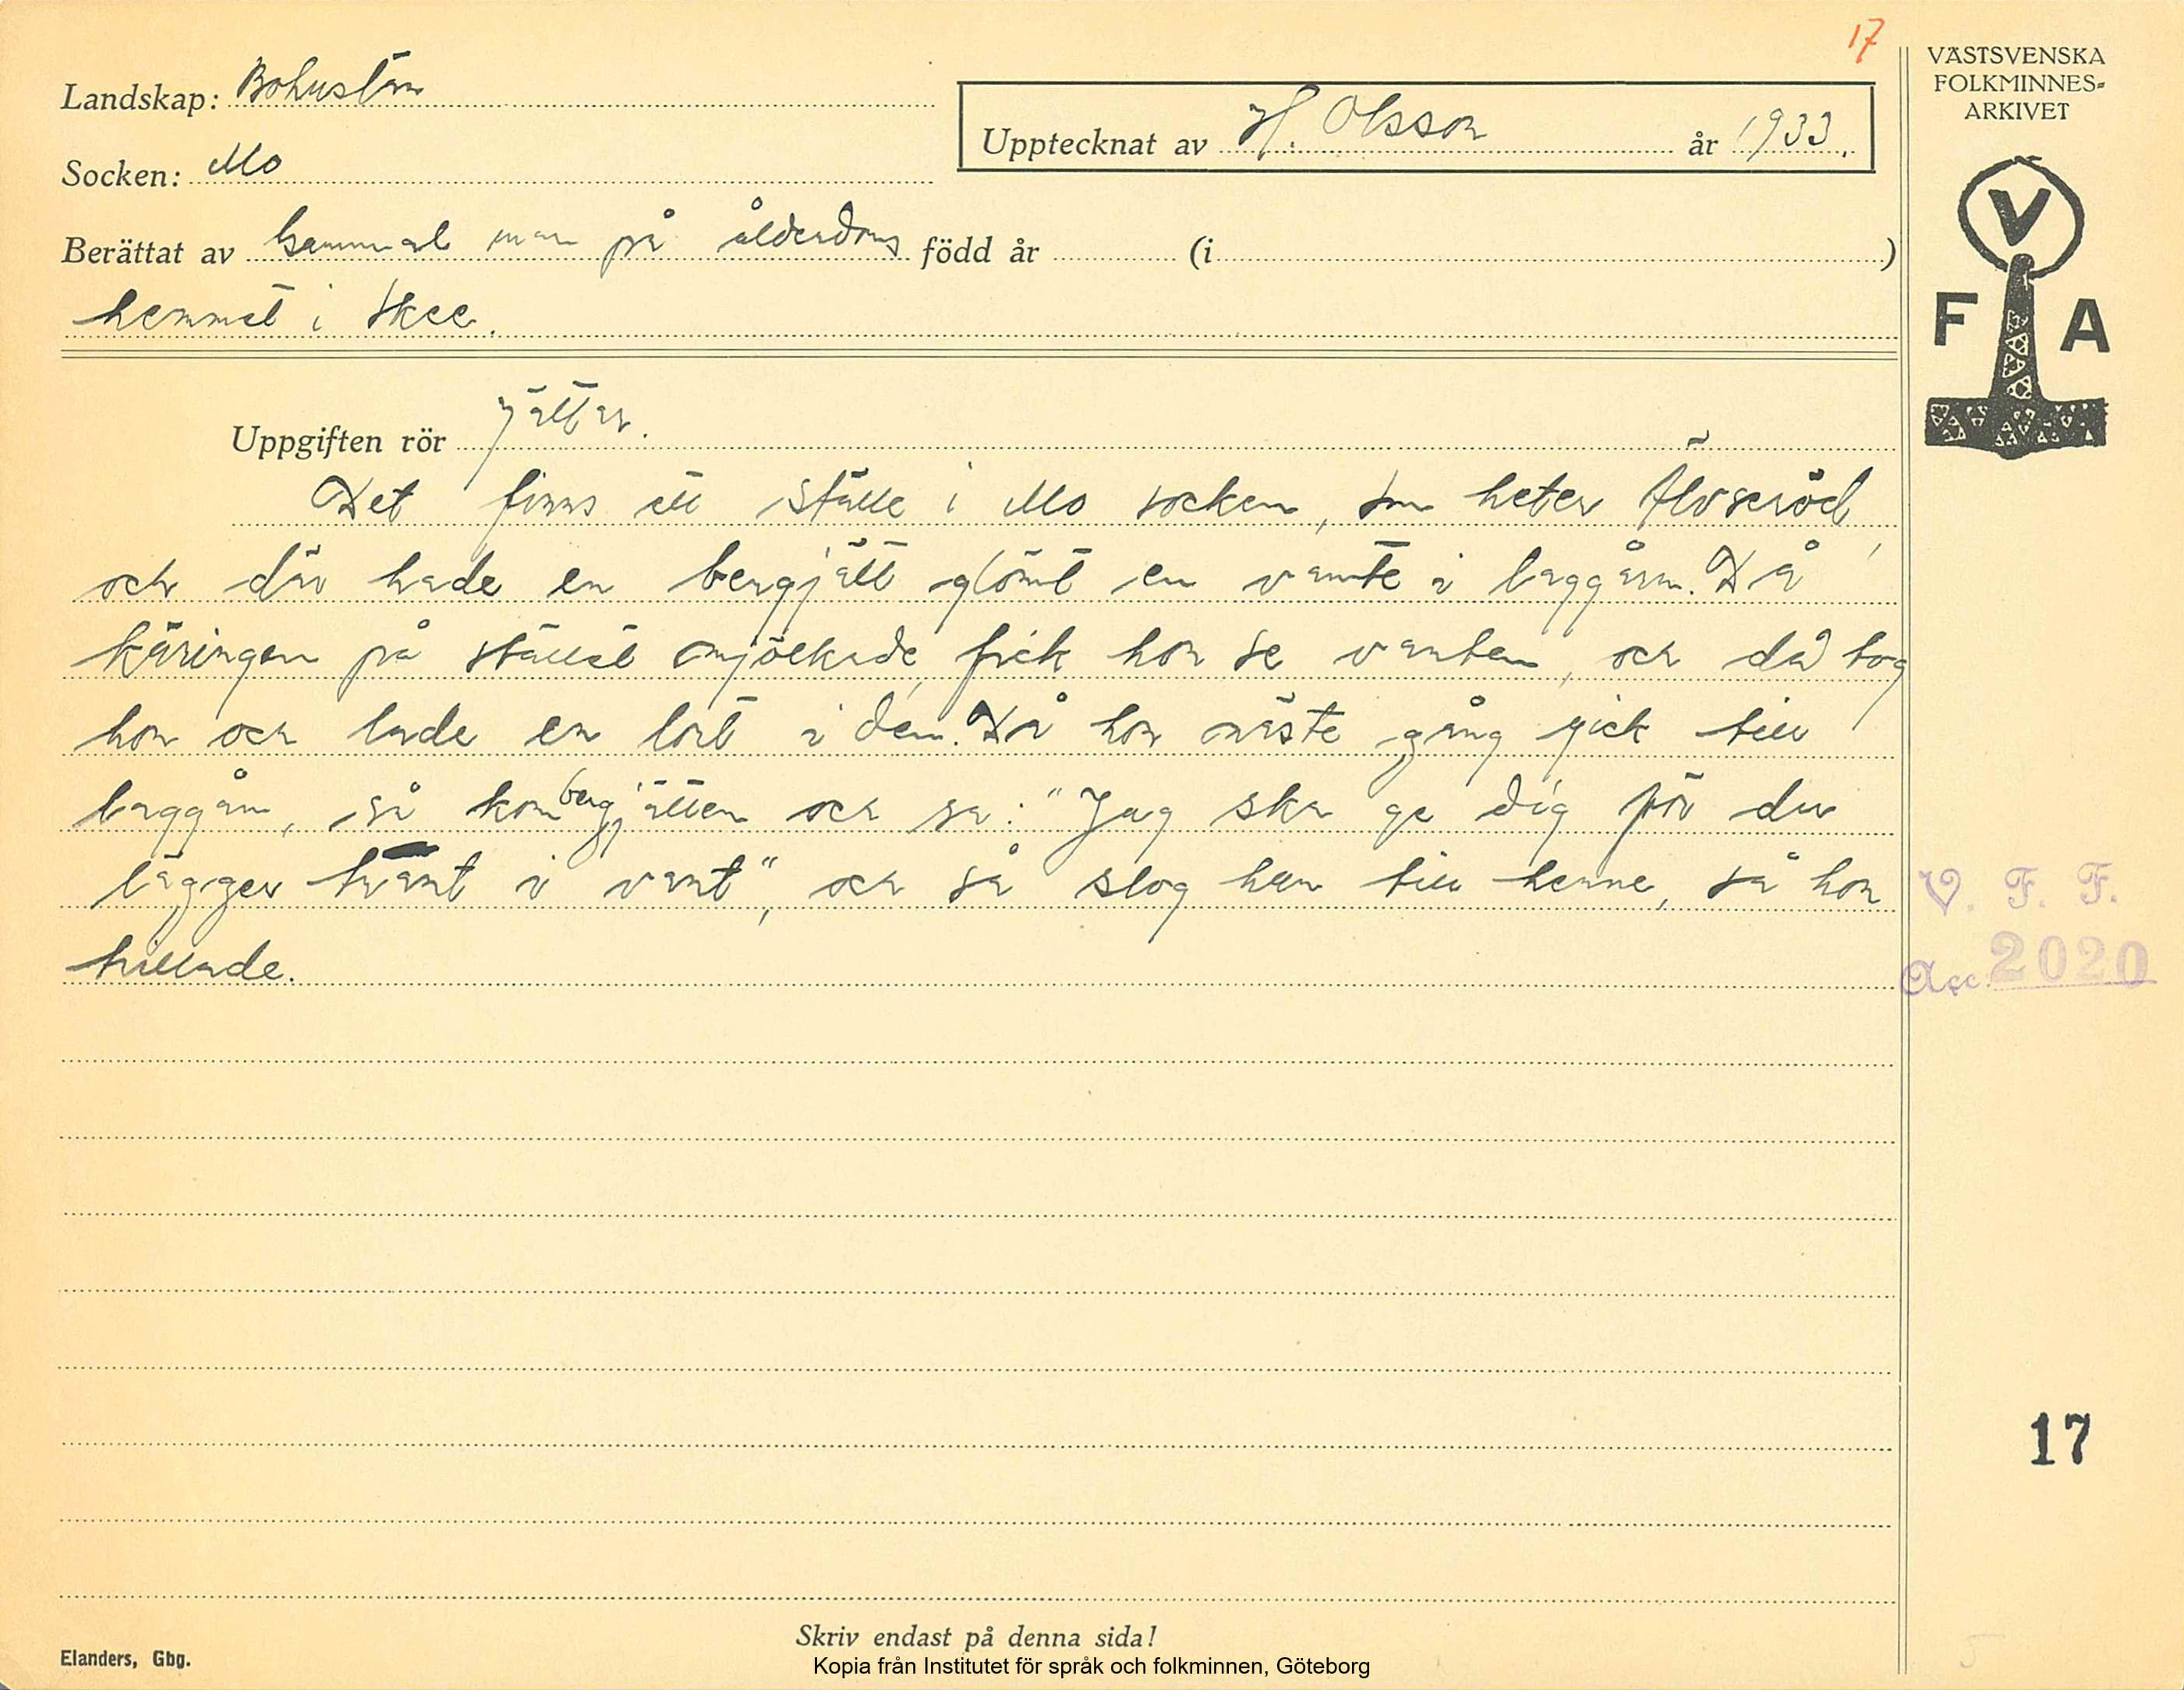 17
VÄSTSVENSKA
FOLKMINNES-
ARKIVET
Landskap: Bohuslän
Upptecknat av H. Olsson år 1933.
Socken: Mo
Berättat av Gammal man på ålderdoms född år (i )
hemmet i Skee.
V
F A
Uppgiften rör Jättar.
Det finns ett ställe i Mo socken, som heter Älvseröd,
och där hade en bergjätt glömt en vante i laggårn. Då
käringen på stället mjölkade, fick hon se vanten, och då tog
hon och lade en lort i den. Då hon näste gång gick till
laggårn, så kom bergjätten och sa: "Jag ska ge dig för du
lägger trant i vant", och så slog han till henne, så hon
trillade.
V. F. F.
Acc. 2020
17
Skriv endast på denna sida!
Elanders, Gbg.
Kopia från Institutet för språk och folkminnen, Göteborg